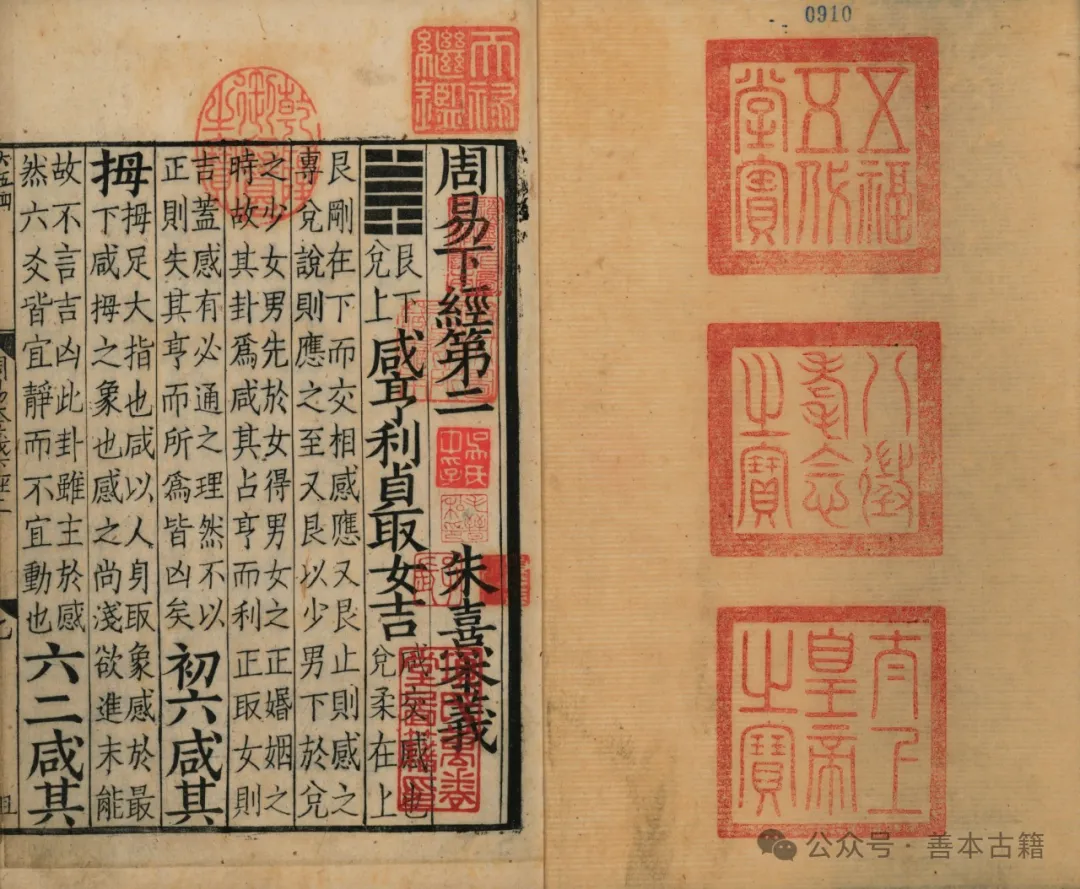 0910
五福
五代
堂寶
八徵
耄念
之寶
太上
皇帝
之寶
天祿
繼鑑
乾隆御覽之寶
周易下經第二 朱熹本義
艮下
兌上
咸亨利貞取女吉
咸交感也
兌柔在上
艮剛在下而交相感應又艮止則感之
專兌說則應之至又艮以少男下於兌
之少女男先於女得男女之正婚姻之
時故其卦爲咸其占亨而利正取女則
吉蓋感有必通之理然不以
正則失其亨而所爲皆凶矣
初六咸其
拇
拇足大指也咸以人身取象感於最
下咸拇之象也感之尚淺欲進未能
故不言吉凶此卦雖主於感
然六爻皆宜靜而不宜動也
六二咸其
公众号·善本古籍